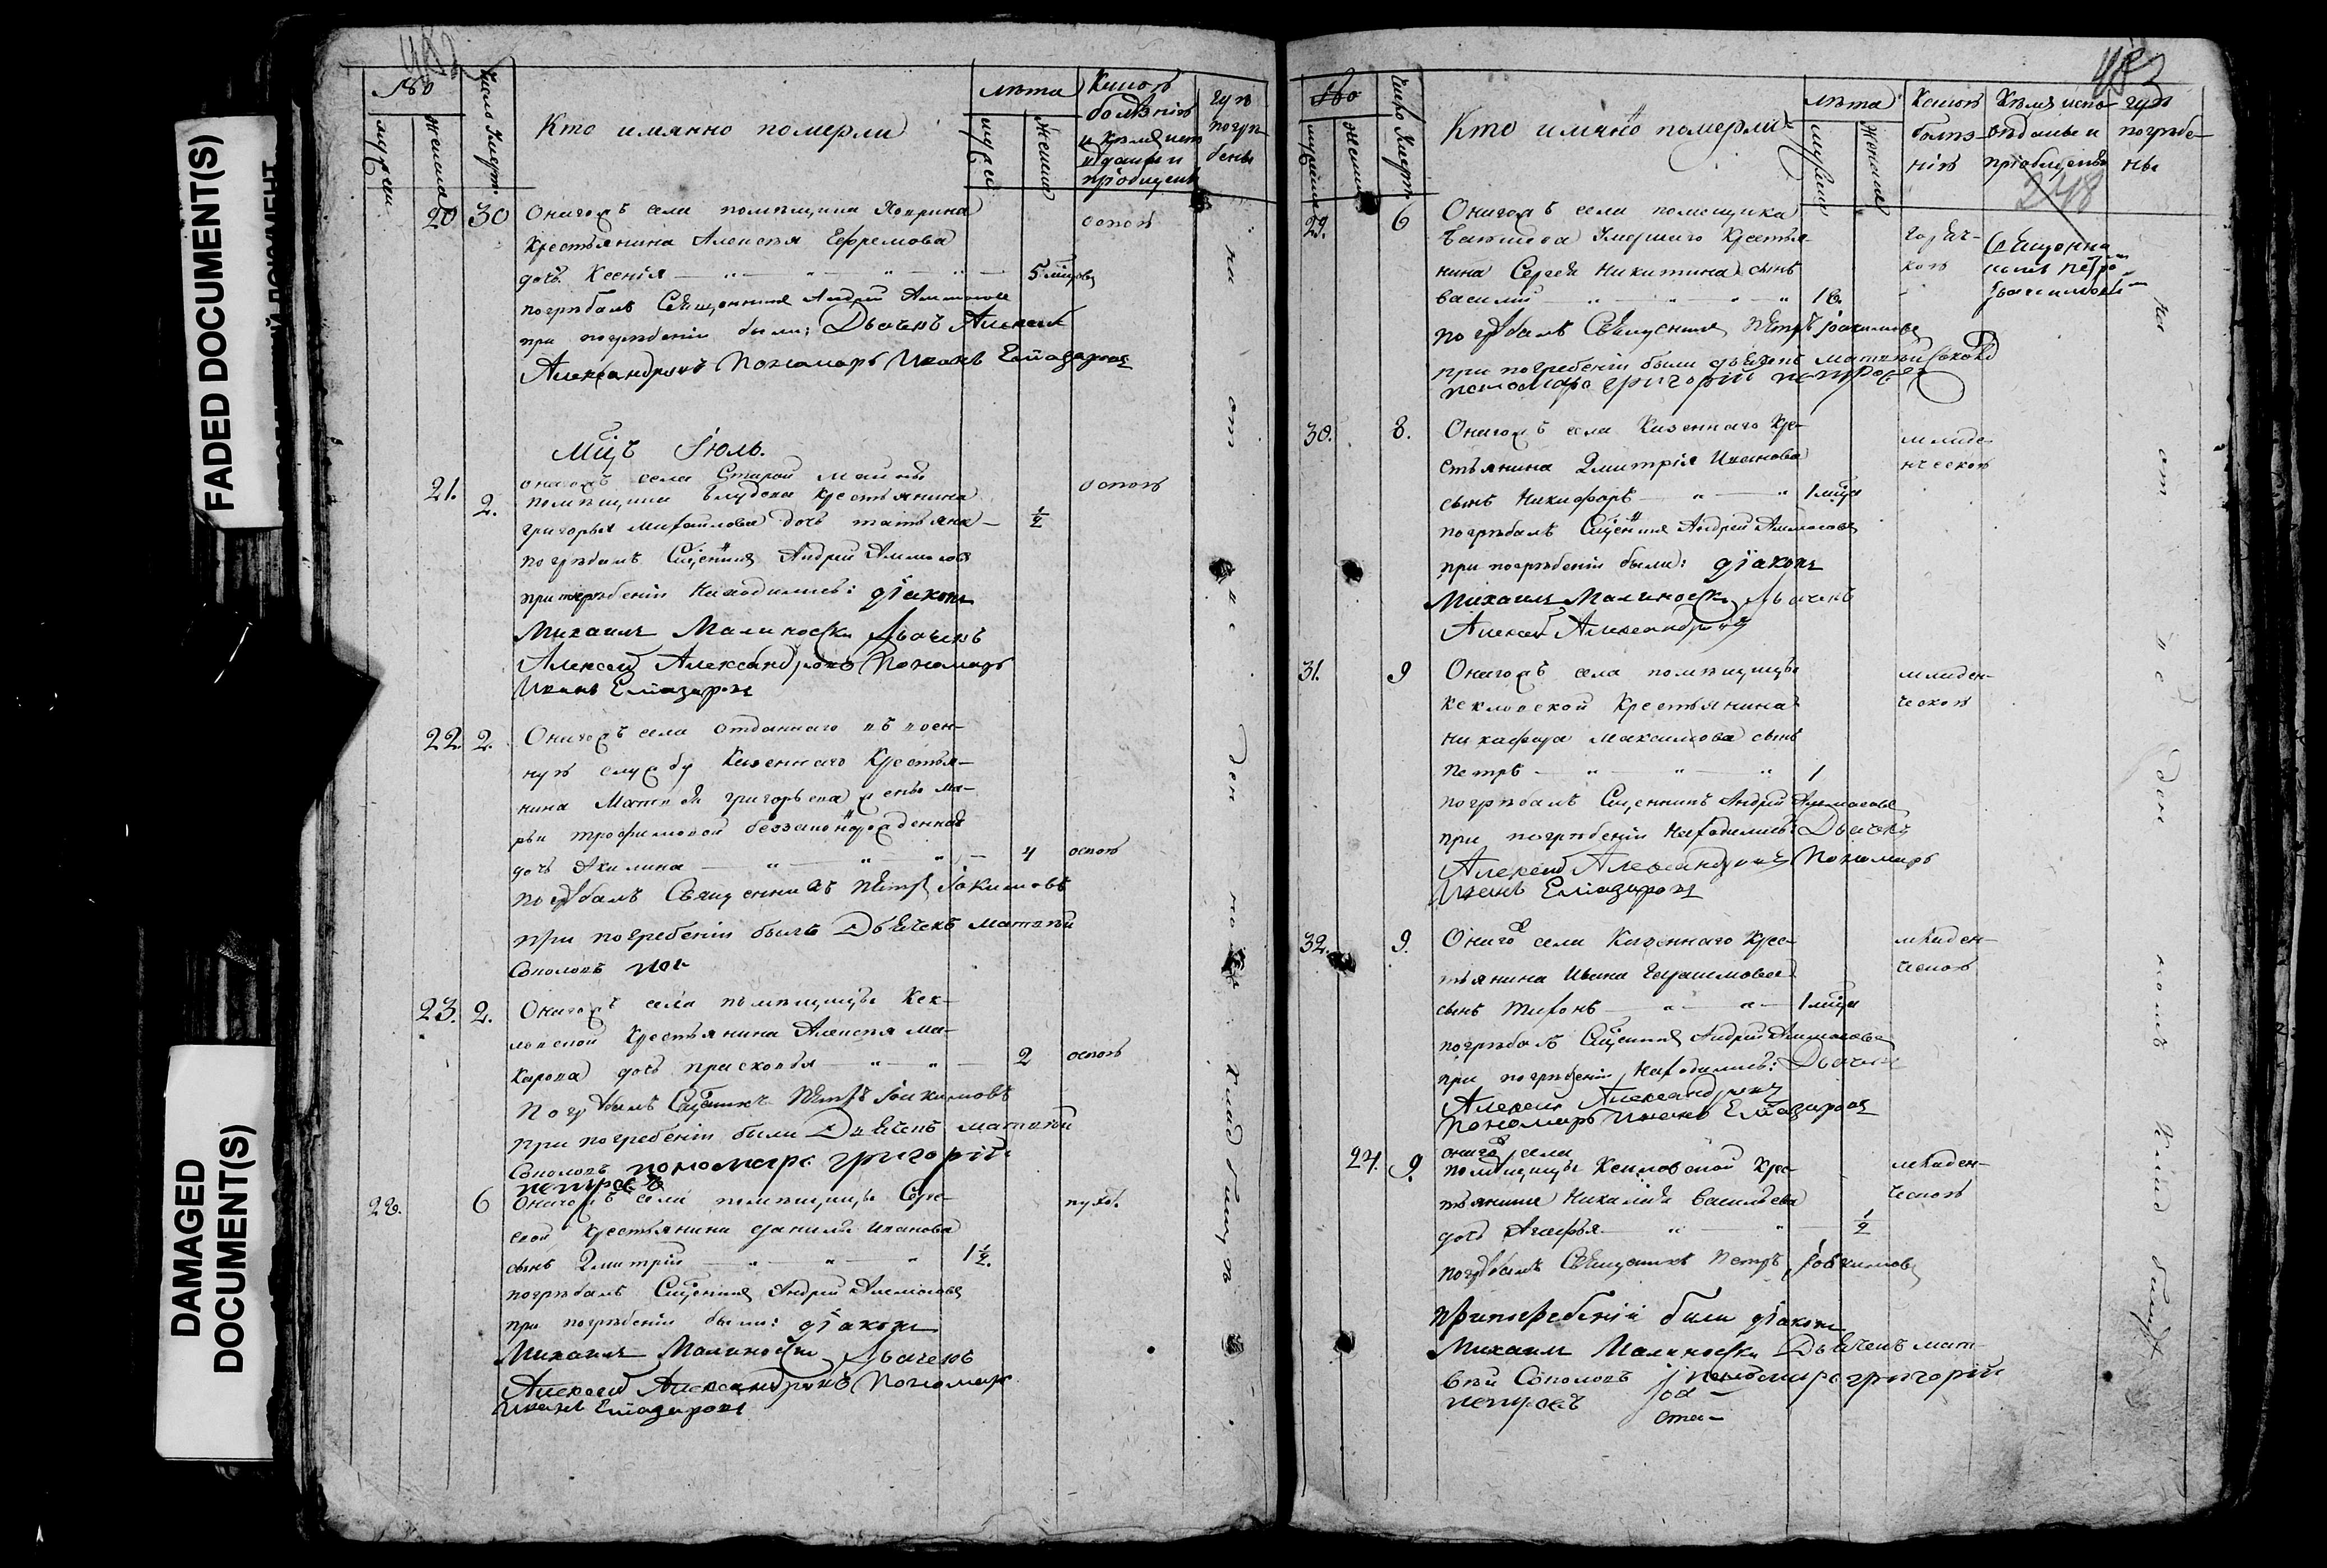 FADED DOCUMENT(S)
DAMAGED
DOCUMENT(S)
482
№
мужеска
женска
Число Умерт.
Кто имянно померли
лѣта
мужеска
женска
Какою
болѣзнію
и кѣмъ испо
вѣданы и
пріобщены
гдѣ
погре-
бены
20 30 Онагожъ села помѣщика
крестьянина Алексѣя Ефремова
дочь Ксенія 5 мѣсяцовъ
оспою
погрѣбалъ Священникъ Андрей Аммосовъ
при погрѣбеніи были: Дьячекъ Алексей
Александровъ Пономарь Иванъ Елиазаровъ
Мцъ Іюль.
21. 2. онагожъ села Старой Майны
помѣщика крестьянина
григорья михайлова дочь татьяна ½
оспою
погрѣбалъ Сщенникъ Андрей Аммосовъ
при погрѣбеніи находились: діаконъ
Михаилъ Малиновски Дьячекъ
Алексей Александровъ Пономарь
Иванъ Елиазаровъ
22. 2. Онагожъ села отданнаго въ воен-
ную службу Казеннаго крестья-
нина Матвѣя григорьева жены ма-
рьи трофимовой беззаконнорожденная
дочь Акилина 4 оспою
погребалъ Священникъ Петръ Іокимовъ
при погребеніи былъ Дьячекъ матвѣй
Соколовъ
23. 2. Онагожъ села помѣщицы Кек-
ловской крестьянина Алексѣя ма-
карова дочь прасковья 2 оспою
Погребалъ Сщенникъ Петръ Іоакимовъ
при погребеніи были Дьячекъ матвѣй
Соколовъ пономарь григорій
петровъ
28. 6 Онагожъ села помѣщицы
крестьянина данилы иванова
сынъ Дмитрій 1½.
погрѣбалъ Сщенникъ Андрей Аммосовъ
при погрѣбеніи были: діаконъ
Михаилъ Малиновски Дьячекъ
Алексей Александровъ Пономарь
Иванъ Елиазаровъ
на от ве ден ном кладбищѣ
483
№
мужеска
женска
Число Умерт
Кто имянно померли
лѣта
мужеска
женска
Какою
болѣз-
нію
Кѣмъ испо-
вѣданы и
пріобщены
гдѣ
погрѣбе-
ны
248
29. 6 Онагожъ села помещика
умершаго крестья-
нина Сергея Никитина сынъ
василий 18.
горяч-
кою
Священни-
комъ петро-
Іоакимовы-
погребалъ Священникъ Петръ Іоакимовъ
при погребеніи были дьячекъ матвѣй Соколов
пономарь григорій петровъ
30. 8. Онагожъ села Казеннаго кре-
стьянина Дмитрія Иванова
сынъ Никифоръ 1 мцъ
младе-
нческою
погрѣбалъ Сщенникъ Андрей Аммосовъ
при погрѣбеніи были: діаконъ
Михаилъ Малиновски Дьячекъ
Алексей Александровъ
31. 9 Онагожъ села помѣщицы
Кекловской крестьянина
никафора максимова сынъ
петръ 1
младен-
ческою
погрѣбалъ Сщенникъ Андрей Аммосовъ
при погрѣбеніи находились: Дьячекъ
Алексей Александровъ Пономарь
Иванъ Елиазаровъ
32. 9. Онагожъ села Казеннаго крес-
тьянина Ивана Герасимова
сынъ Тихонъ 1 мцъ
младен-
ческою
погрѣбалъ Сщенникъ Андрей Аммосовъ
при погрѣбеніи находились: Дьячекъ
Алексей Александровъ
Пономарь Иванъ Елиазаровъ
24. 9. онагожъ села
помѣщицы Кекловской крес-
тьянина Николая Васильева
дочь Агафья ½
младен-
ческою
погребалъ Священникъ Петръ Іоакимовъ
при погребеніи были діаконъ
Михаилъ Малиновски Дьячекъ мат-
вѣй Соколовъ пономарь григорій
петровъ
на от ве ден номъ кладбищѣ